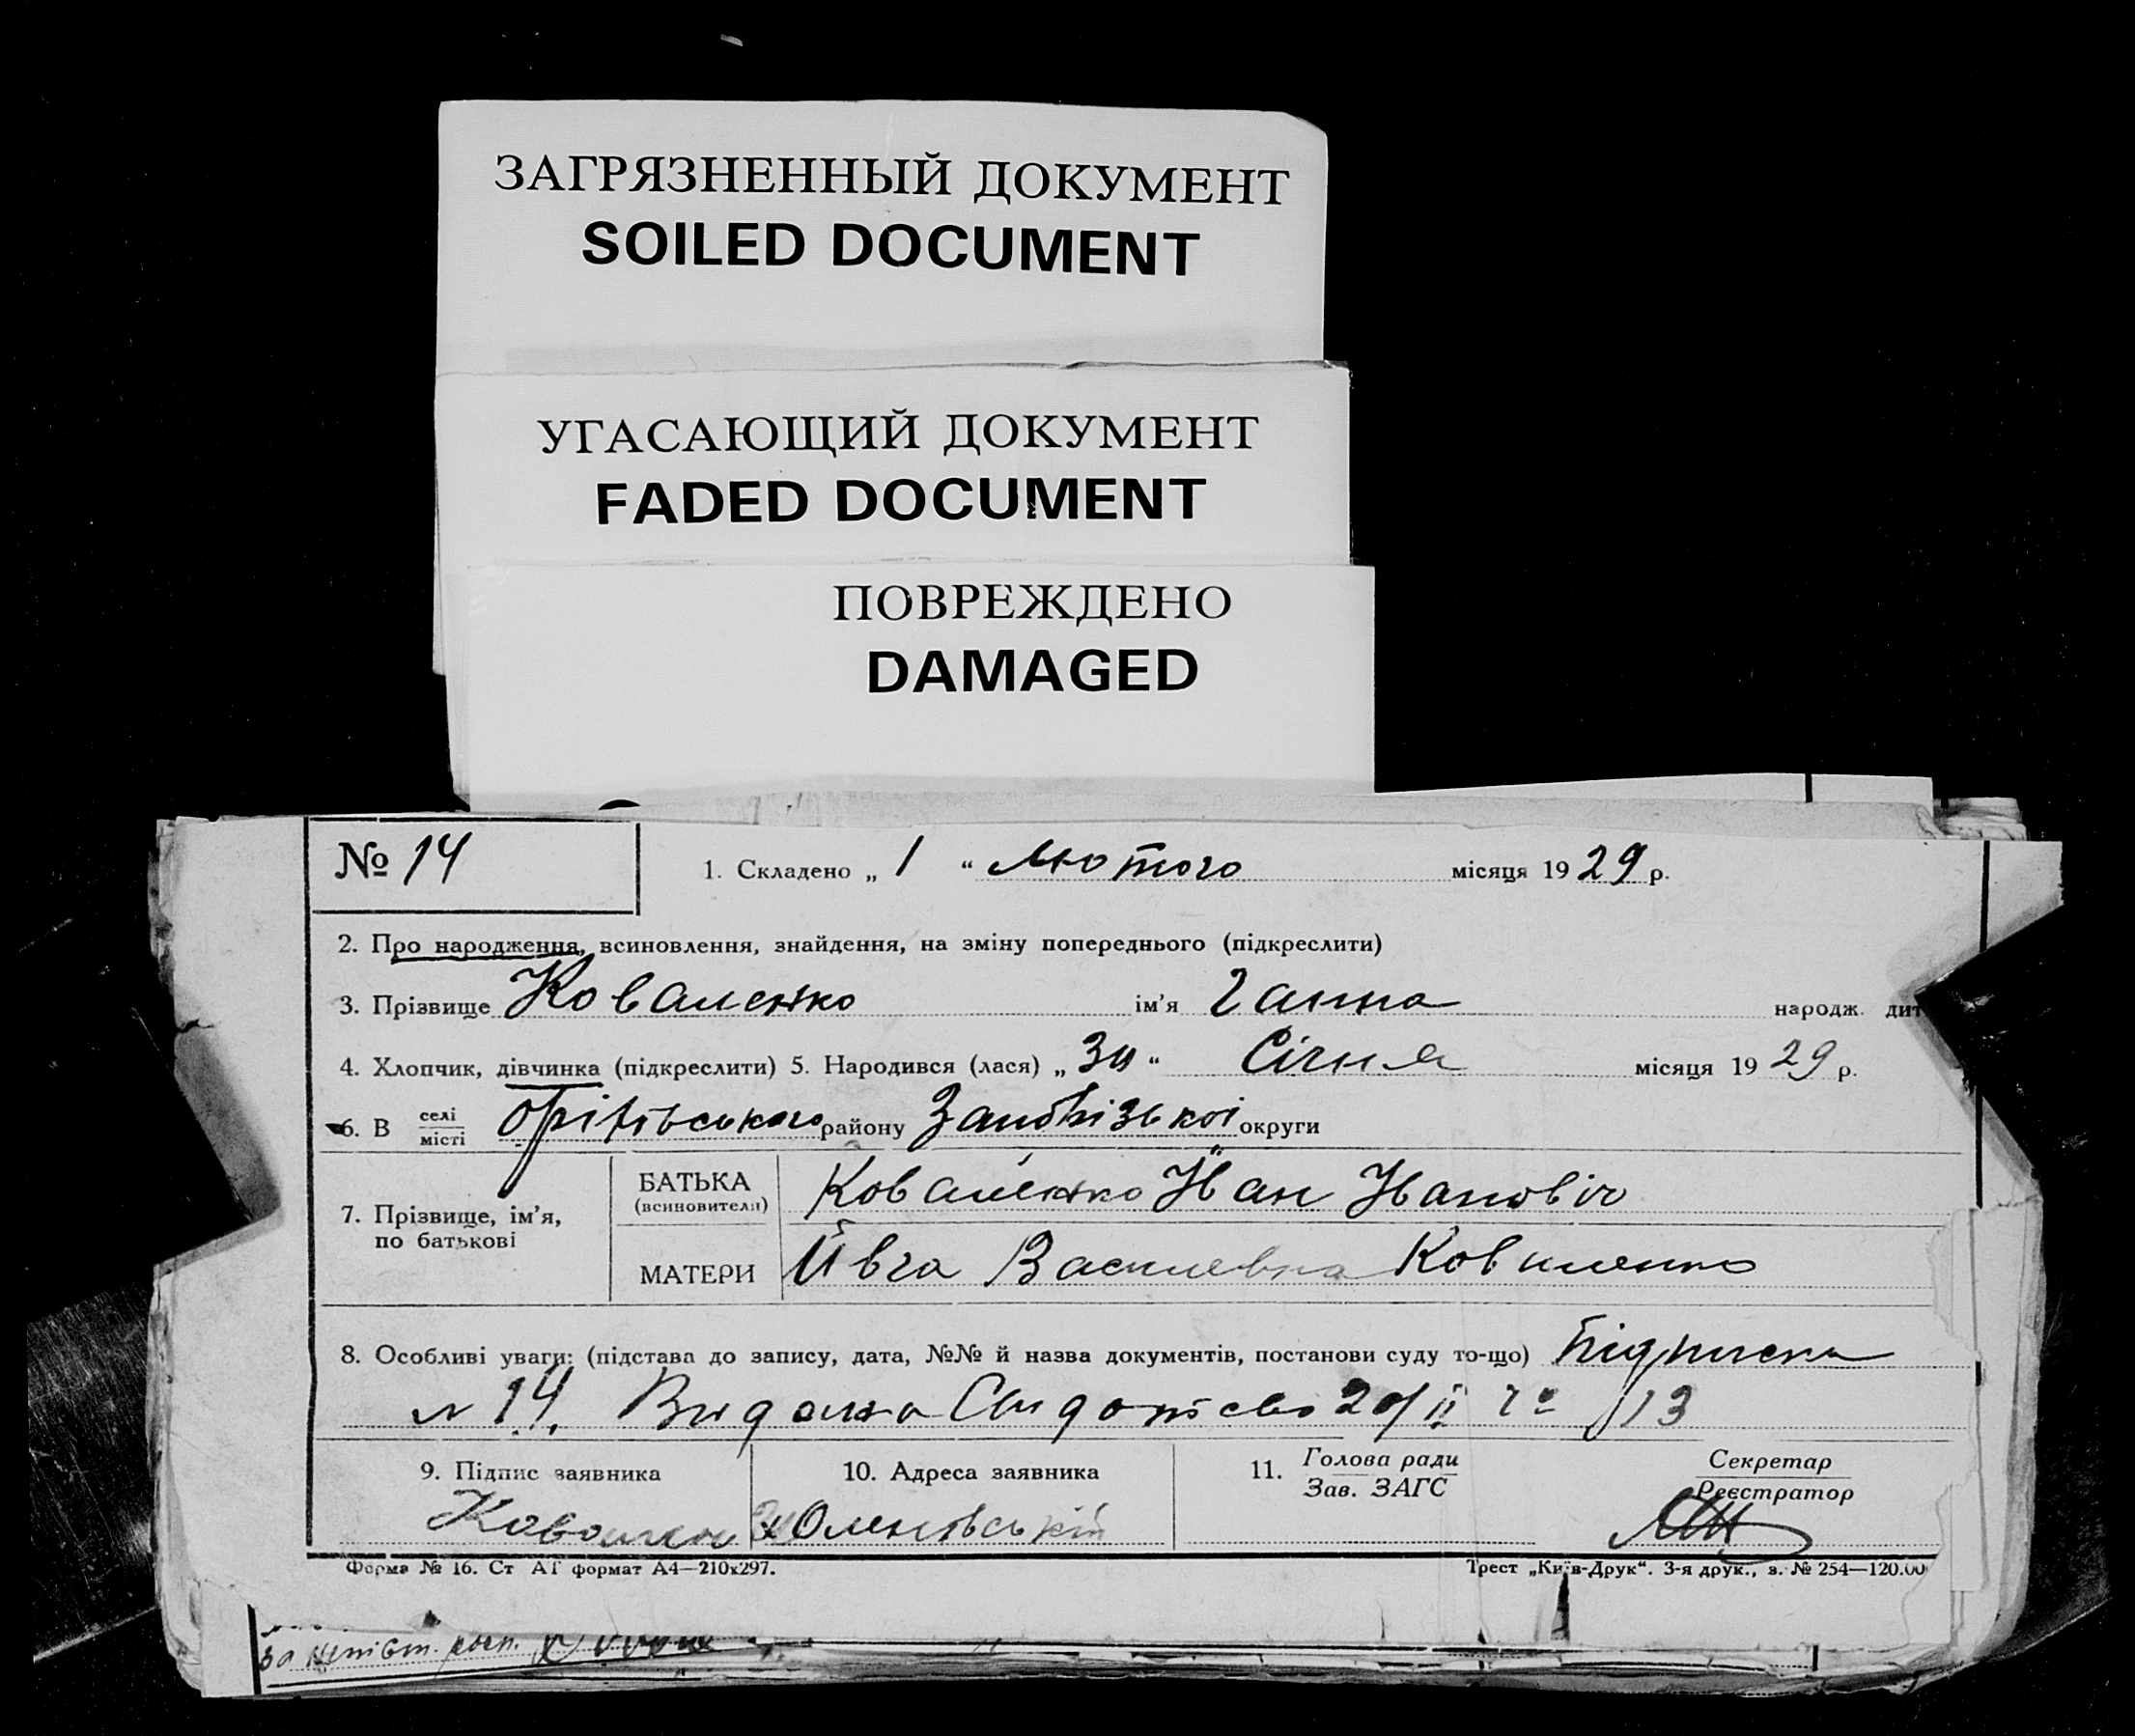 ЗАГРЯЗНЕННЫЙ ДОКУМЕНТ
SOILED DOCUMENT
УГАСАЮЩИЙ ДОКУМЕНТ
FADED DOCUMENT
ПОВРЕЖДЕНО
DAMAGED
№ 14
1. Складено „ 1 “ Лютого місяця 1929 р.
2. Про народження, всиновлення, знайдення, на зміну попереднього (підкреслити)
3. Прізвище Коваленко ім’я Ганна народж. дит
4. Хлопчик, дівчинка (підкреслити) 5. Народився (лася) „ “ Січня місяця 1929 р.
6. В селі/місті району округи
7. Прізвище, ім’я, по батькові
БАТЬКА (всиновителя) Коваленко Иван Иванович
МАТЕРИ Ивга Василевна Коваленко
8. Особливі уваги: (підстава до запису, дата, №№ й назва документів, постанови суду то-що) Підписка
№ 14. Видано 13
9. Підпис заявника 10. Адреса заявника 11. Голова ради Секретар
Зав. ЗАГС Реєстратор
Форма № 16. Ст АГ формат А4—210х297. Трест „Київ-Друк“. 3-я друк., з. № 254—120.00